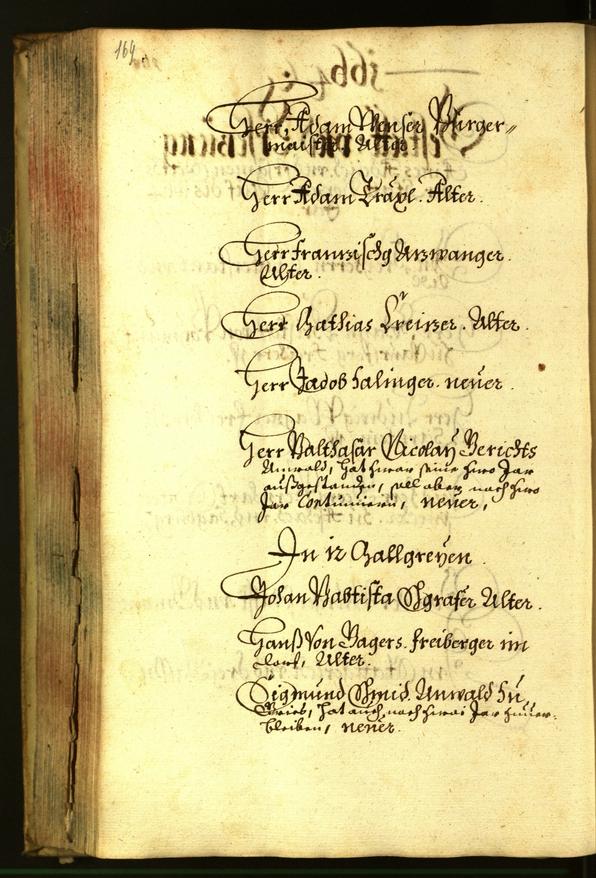 164
Herr Adam Menser Burger„
maister Alter
Herr Adam Träxl. Alter.
Herr Franzisch Anzwanger
Alter.
Herr Mathias Alter.
Herr Jacob Salinger. neüer.
Herr Balthasar Nicolaÿ Gerichts
Anwald, hat zwar seine zwo Jar
außgestanden, soll aber noch zwo
Jar Continuiern, neüer,
In
Johan Babtista Grafer Alter.
Hannß Von Zagers. freiberger im
Dorf, Alter.
Sigmund Schmid. Anwald zu
Gries, hat auch noch zwai Jar zuuer„
bleiben, neüer.